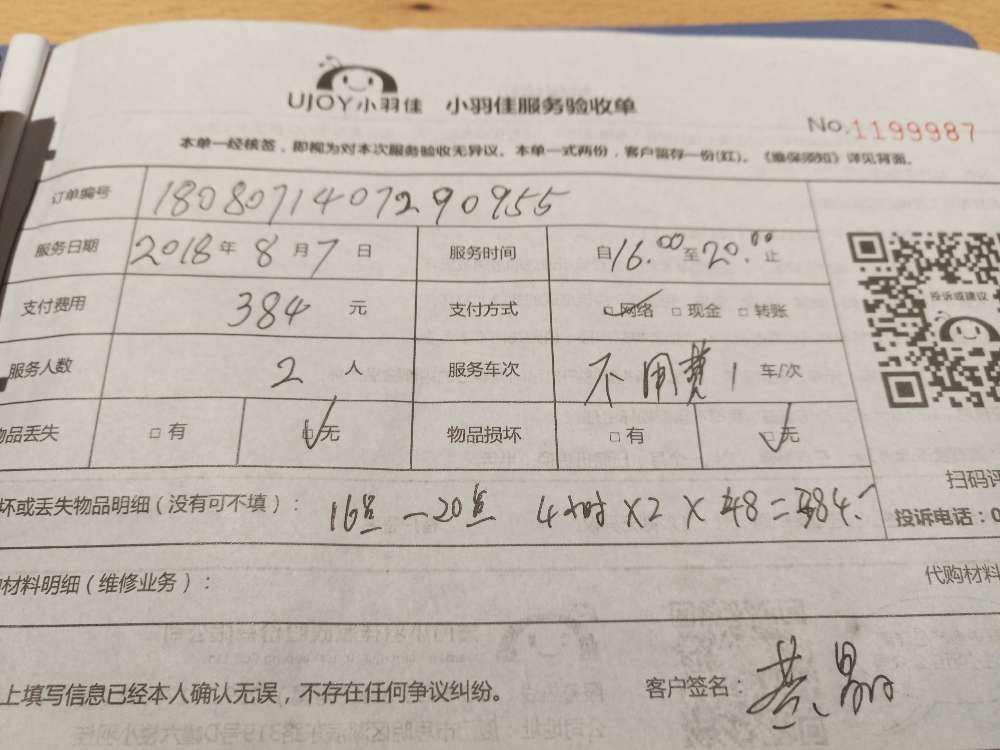 UJOY小羽佳 小羽佳服务验收单
No.1199987
本单一经核签，即视为对本次服务验收无异议。本单一式两份，客户留存一份(红)。《维保须知》详见背面。
订单编号 1808071407290955
服务日期 2018年8月7日 服务时间 自16.00至20.00止
支付费用 384 元 支付方式 □网络 □现金 □转账
投诉或建议
服务人数 2 人 服务车次 不用费 1 车/次
物品丢失 □有 □无 物品损坏 □有 □无
扫码评
坏或丢失物品明细（没有可不填）： 16点—20点 4小时×2×48=384.
投诉电话：0
材料明细（维修业务）： 代购材料
上填写信息已经本人确认无误，不存在任何争议纠纷。 客户签名：